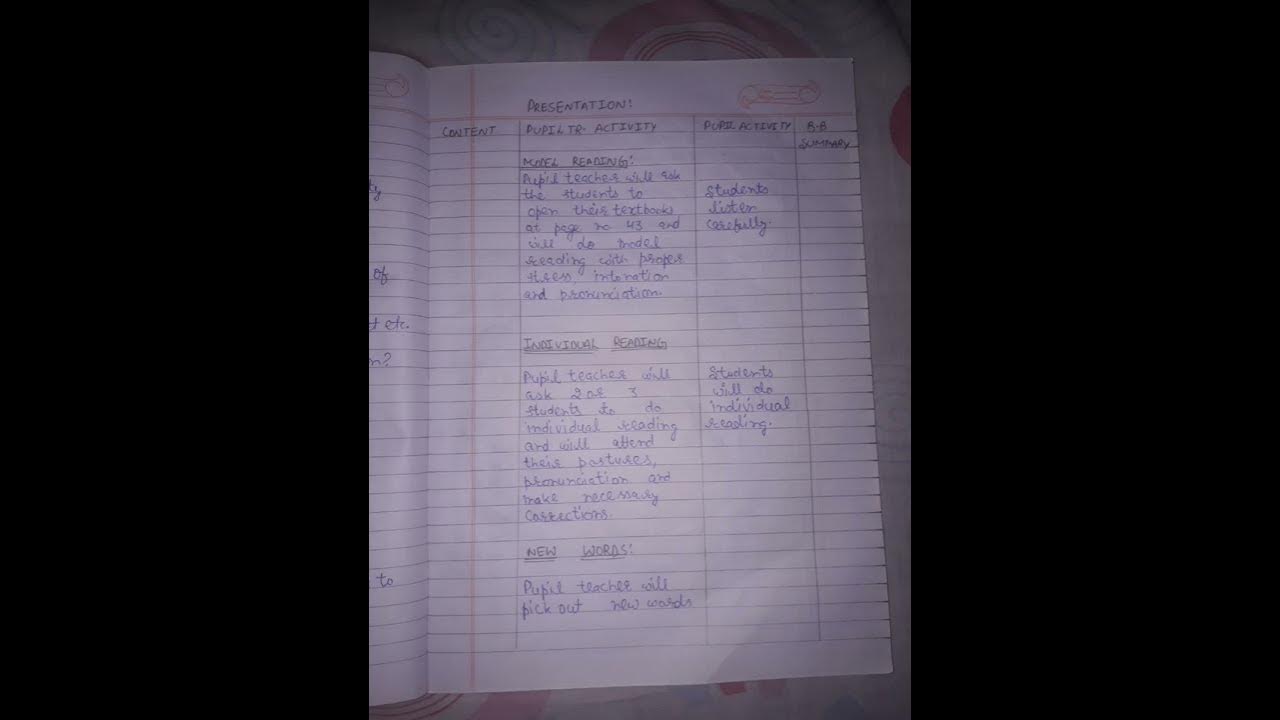 PRESENTATION:
CONTENT PUPIL TR. ACTIVITY PUPIL ACTIVITY B.B
SUMMARY
MODEL READING:
Pupil teacher will ask
the students to students
open their textbooks listen
at page no 43 and carefully.
will do model
reading with proper
stress, intonation
and pronunciation.
INDIVIDUAL READING
Pupil teacher will Students
ask 2 or 3 will do
students to do individual
individual reading reading.
and will attend
their postures,
pronunciation and
make necessary
corrections.
NEW WORDS:
Pupil teacher will
pick out new words
of
etc.
to